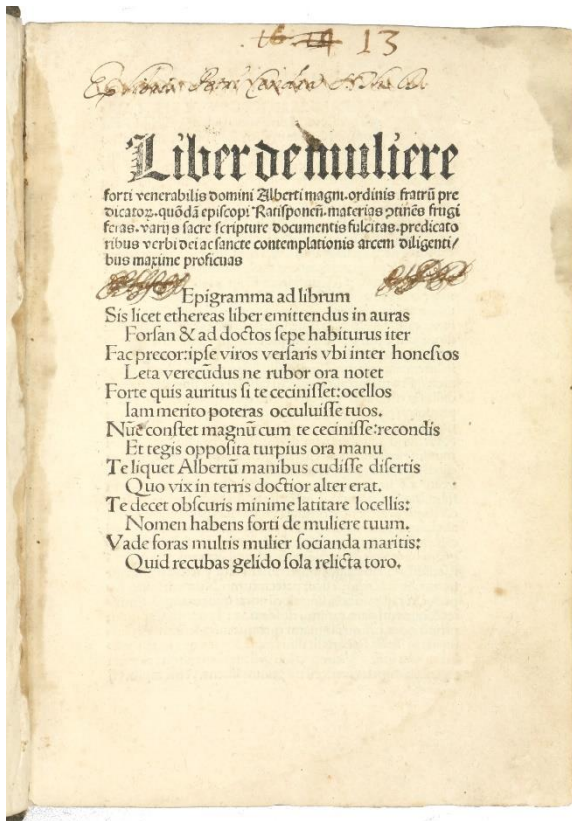 16 14 13
Liber de muliere
forti venerabilis domini Alberti magni. ordinis fratrū pre
dicatoꝝ. quōdā episcopi Ratisponeñ. materias ꝯtinēs frugi
feras. varijs sacre scripture documentis fulcitas. predicato
ribus verbi dei ac sancte contemplationis arcem diligenti/
bus maxime proficuas
Epigramma ad librum
Sis licet ethereas liber emittendus in auras
Forsan & ad doctos sepe habiturus iter
Fac precor: ipse viros versaris vbi inter honestos
Leta verecūdus ne rubor ora notet
Forte quis auritus si te cecinisset: ocellos
Iam merito poteras occuluisse tuos.
Nūc constet magnū cum te cecinisse: recondis
Et tegis opposita turpius ora manu
Te liquet Albertū manibus cudisse disertis
Quo vix in terris doctior alter erat.
Te decet obscuris minime latitare locellis:
Nomen habens forti de muliere tuum.
Vade foras multis mulier socianda maritis:
Quid recubas gelido sola relicta toro.